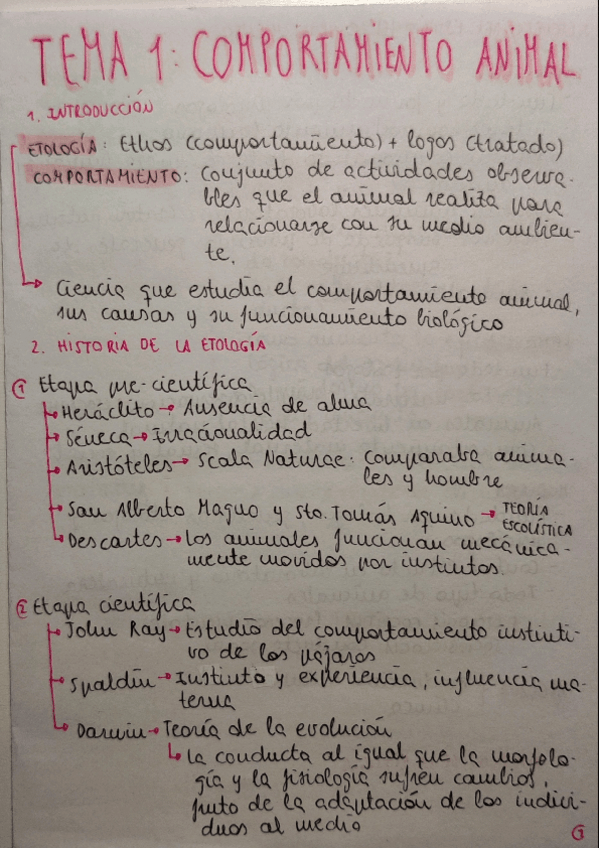 TEMA 1: COMPORTAMIENTO ANIMAL
1. INTRODUCCIÓN
ETOLOGÍA: Ethos (comportamiento) + logos (tratado)
COMPORTAMIENTO: Conjunto de actividades observa-
bles que el animal realiza para
relacionarse con su medio ambien-
te.
→ Ciencia que estudia el comportamiento animal,
sus causas y su funcionamiento biológico
2. HISTORIA DE LA ETOLOGÍA
① Etapa pre-científica
→ Heráclito → Ausencia de alma
→ Séneca → Irracionalidad
→ Aristóteles → Scala Naturae: comparaba anima-
les y hombre
→ San Alberto Magno y Sto. Tomás Aquino → TEORÍA
ESCOLÍSTICA
→ Descartes → los animales funcionan mecánica-
mente movidos por instintos.
② Etapa científica
→ John Ray → Estudio del comportamiento instinti-
vo de los pájaros
→ Spaldin → Instinto y experiencia, influencia ma-
terna
→ Darwin → Teoría de la evolución
↳ la conducta al igual que la morfolo-
gía y la fisiología sufren cambios,
futo de la adaptación de los indivi-
duos al medio
1